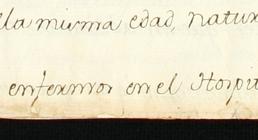 lla misma edad, natur
enfermos en el Hospit